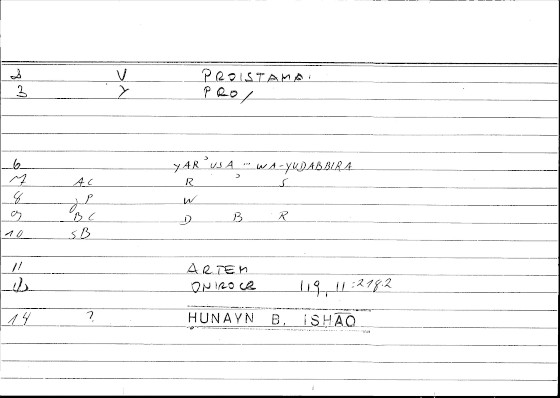 2 V PROISTAMAI
3 Y PRO/
6 YAR'USA ... WA-YUDABBIRA
7 AC R ' S
8 JP W
9 BC D B R
10 SB
11 ARTEM
ONIROCR 119, 11 : 218.2
14 ? HUNAYN B. ISHAQ